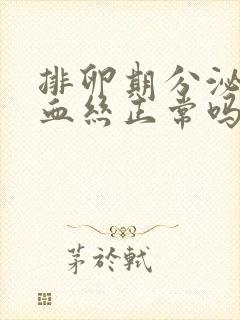 排卵期分泌
血丝正常吗
茅於軾